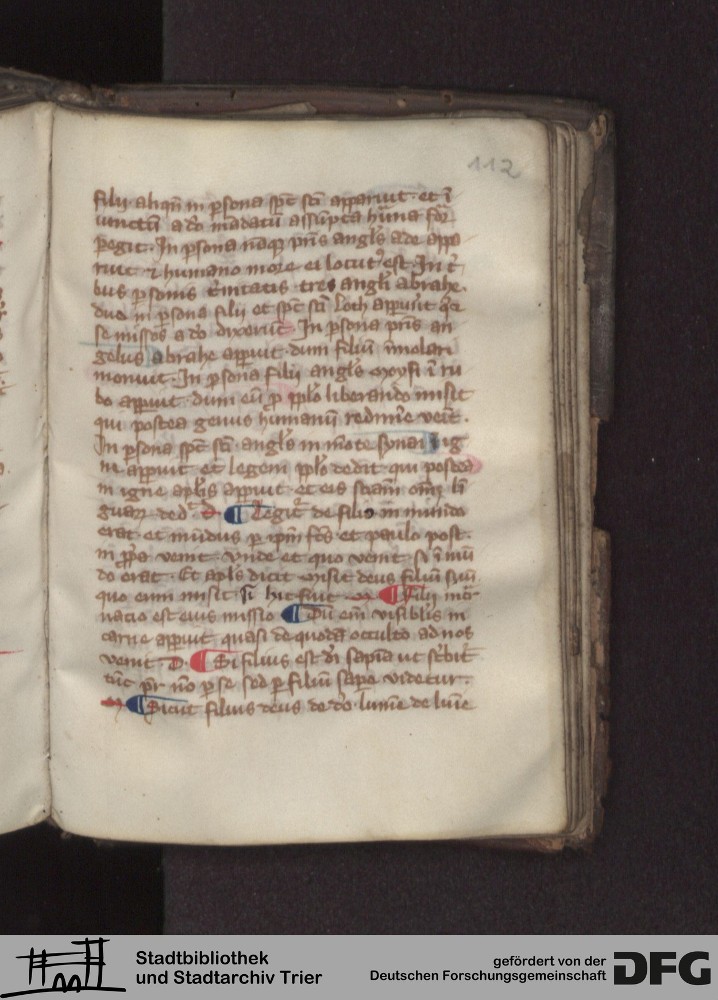 112
filii aliqn̄ in ꝑsona spc̄ sc̄i apparuit · et ī
iunctū a do mādatū assūpta hūna for
pegit · In ꝑsona nāqꝫ pr̄is angl̄s ade appa
ruit ⁊ humano more ei locut9 est In t̄
bus ꝑsonis t̄nitatis tres angl̄i abrahe ·
duo in ꝑsona filii et spc̄ sc̄i loth appuīt
se missos a do dixerūt In ꝑsona pr̄is an
gelus abrahe appuit · dum filiū īmolari
monuit · In ꝑsona filii angl̄s moysi ī ru
bo appuit · dum eū ꝓ ppl̄o liberando misit
qui postea genus humanū redimē veīt ·
In ꝑsona spc̄ sc̄i · angl̄s in mōte synai ī ig
ni appuit et legem ppl̄o dedit qui postea
in igne apl̄is appuit et eis sciām om̄ liī
guaꝝ ded · D · Legit̄ de filio in mundo
erat et mūdus ꝑ ip̄m fc̄s et paulo post ·
in ꝓpa venit · vnde et quo venit · si ī mū
do erat · Et apl̄s dicit misit deus filiū suū
quo enim misit si hic fuit · m Filii incar
nacio est eius missio Dū em̄ visibl̄is in
carne apparuit quasi de quodā occulto ad nos
venit · D · Si filius est di sapīa ut sc̄bit
tūc pr̄ nō ꝑ se sed ꝑ filiū sape videtur ·
m Sicut filius deus de do · lumīe de luīe
Stadtbibliothek
und Stadtarchiv Trier
gefördert von der
Deutschen Forschungsgemeinschaft
DFG